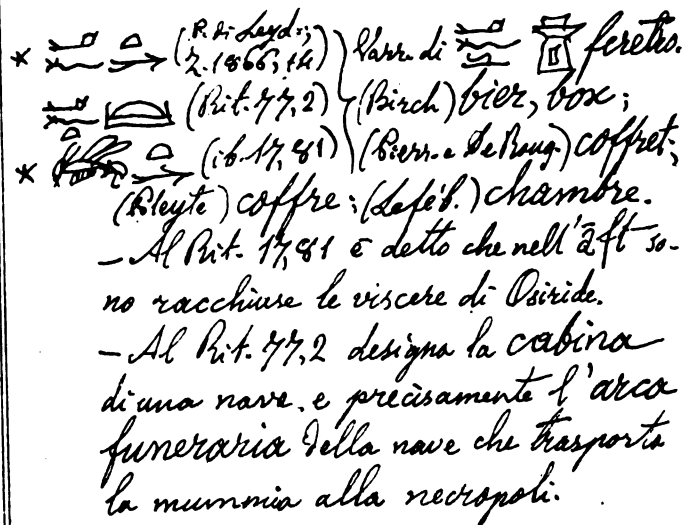 * (P. di Leyd.; Z. 1866, 14) Varr. di feretro.
(Rit. 77, 2) (Birch) bier, box;
* (ib. 17, 81) (Pierr. e De Roug.) coffret;
(Pleyte) coffre; (Leféb.) chambre.
– Al Rit. 17, 81 è detto che nell'āft so-
no racchiuse le viscere di Osiride.
– Al Rit. 77, 2 designa la cabina
di una nave, e precisamente l'arca
funeraria della nave che trasporta
la mummia alla necropoli.